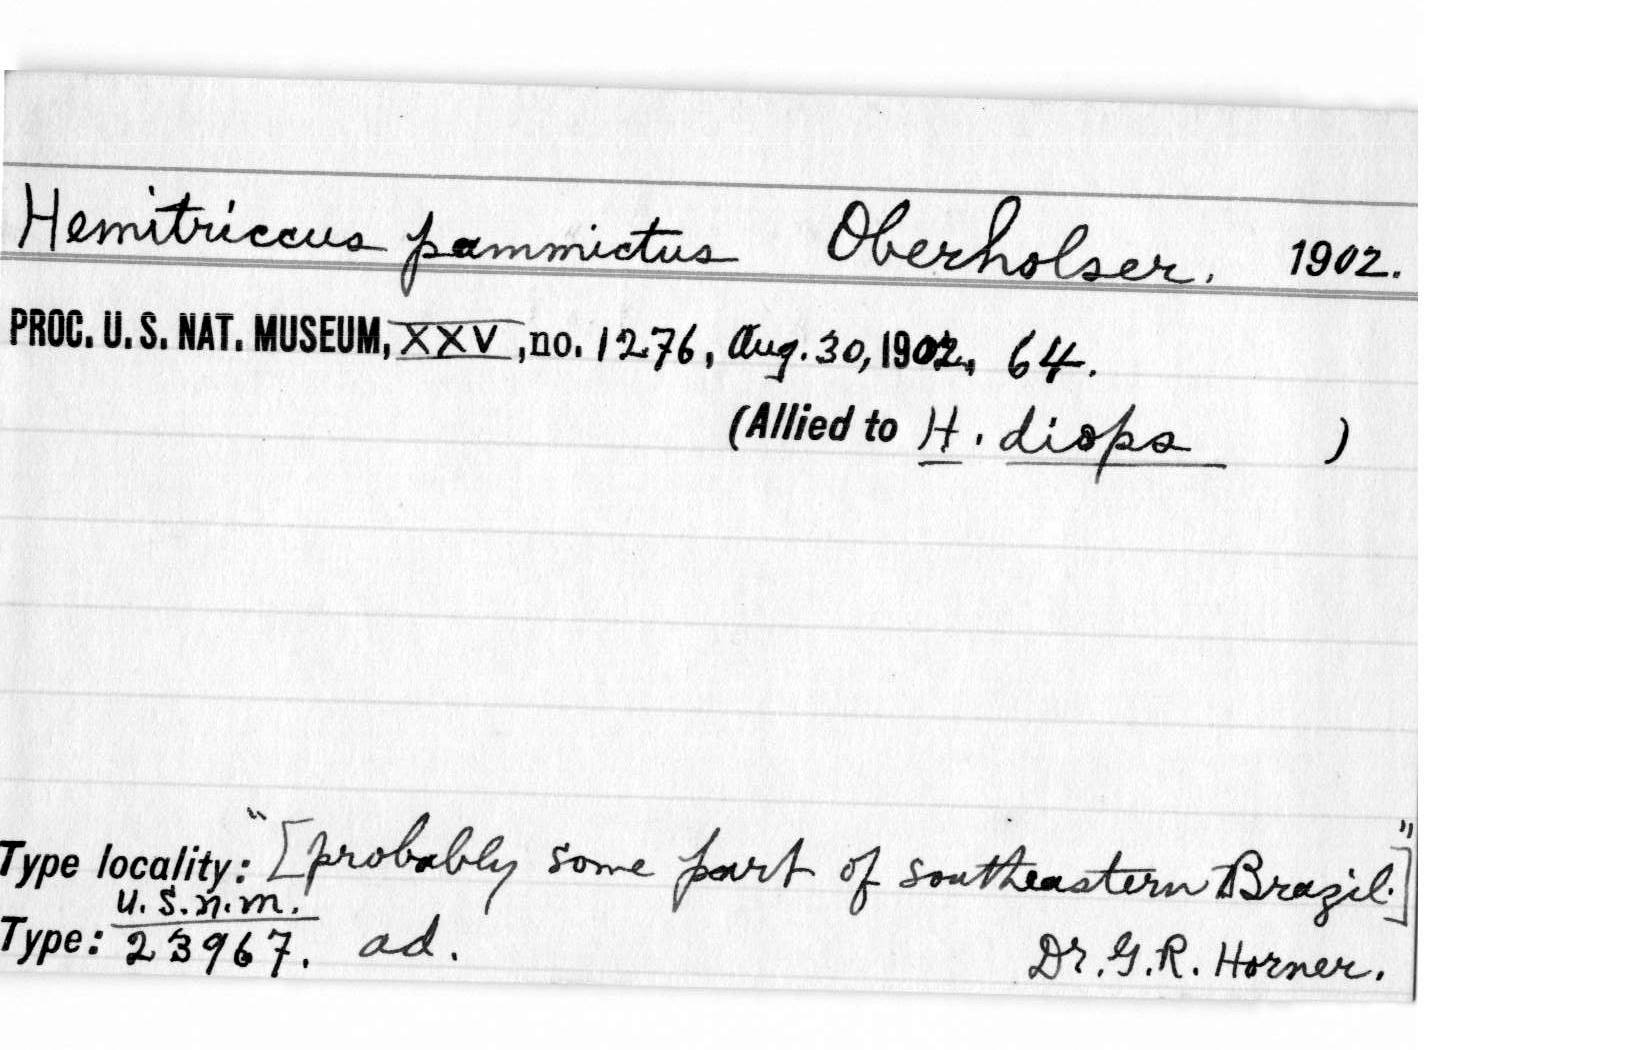 Hemitriccus pammictus Oberholser. 1902.
PROC. U. S. NAT. MUSEUM, XXV, no. 1276, Aug. 30, 1902, 64.
(Allied to H. diops )
Type locality: "[probably some part of southeastern Brazil.]"
U.S.N.M.
Type: 23967. ad. Dr. G. R. Horner.